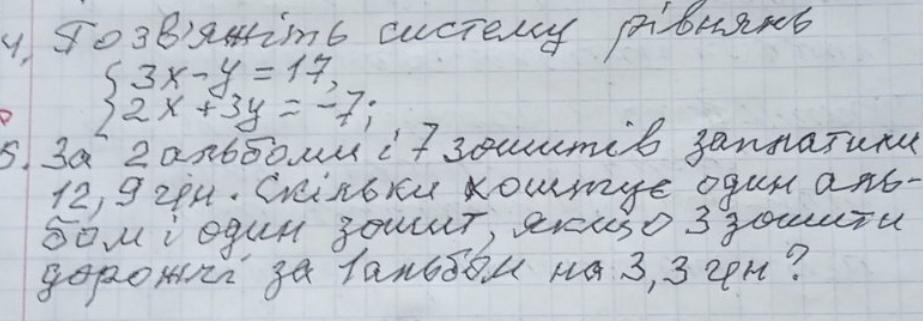 4. Розв'яжіть систему рівнянь
{3x-y=17,
2x+3y=-7;
5. За 2 альбоми і 7 зошитів заплатили
12,9 грн. Скільки коштує один аль-
бом і один зошит, якщо 3 зошити
дорожчі за 1 альбом на 3,3 грн?